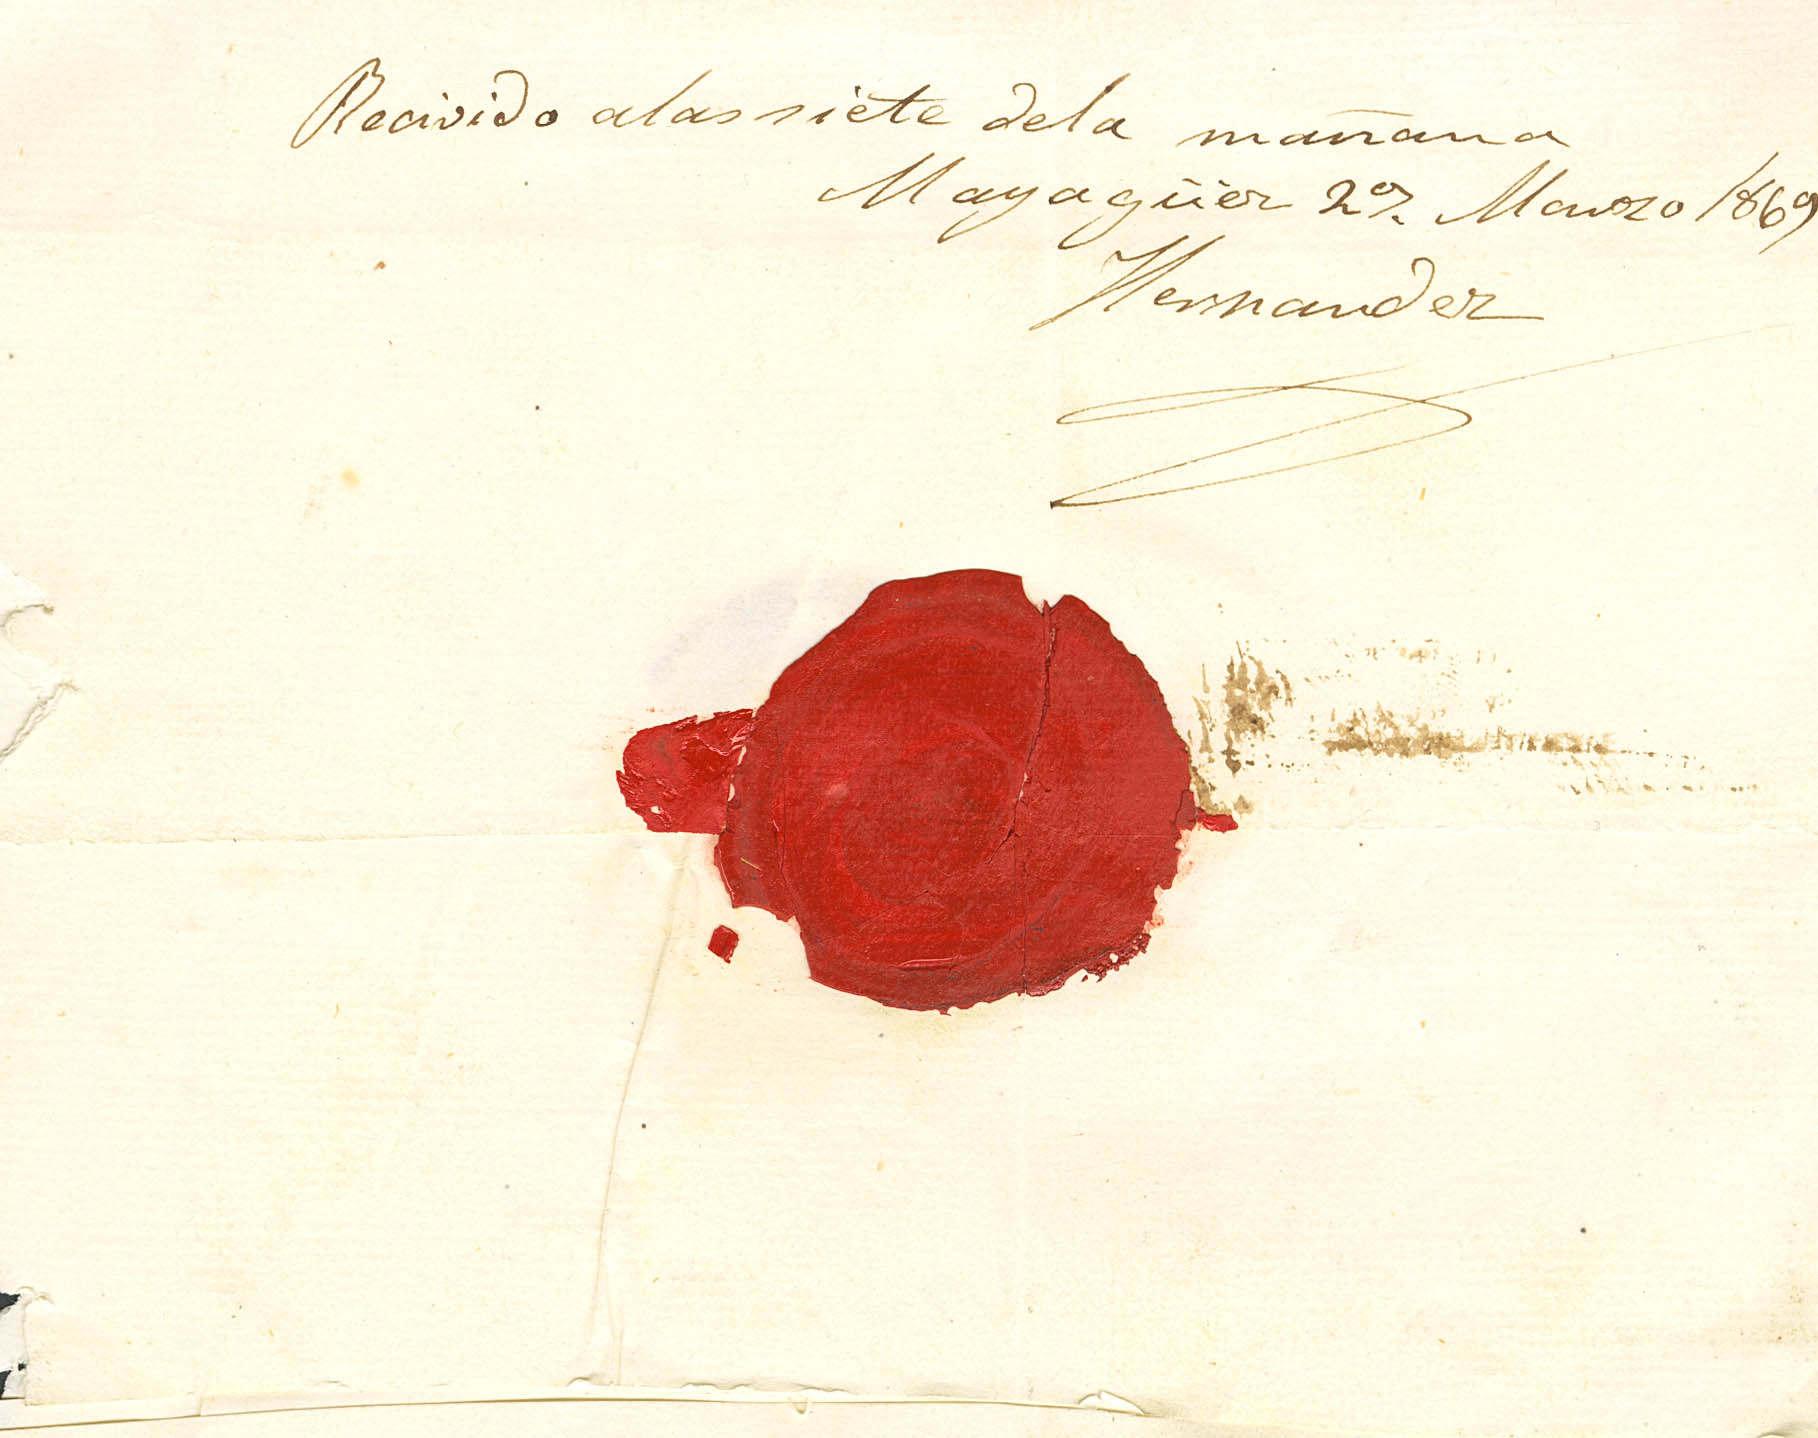 Recivido alas siete dela mañana
Mayagüez 2 Marzo 1869
Hernandez